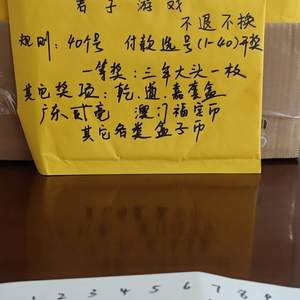 君子游戏
不退不换
规则：40个号 付款选号(1-40)开奖
一等奖：三年大头一枚
其它奖项：乾、道、嘉套盒
广东贰毫 澳门福宝币
其它各类盒子币
1 2 3 4 5 6 7 8 9